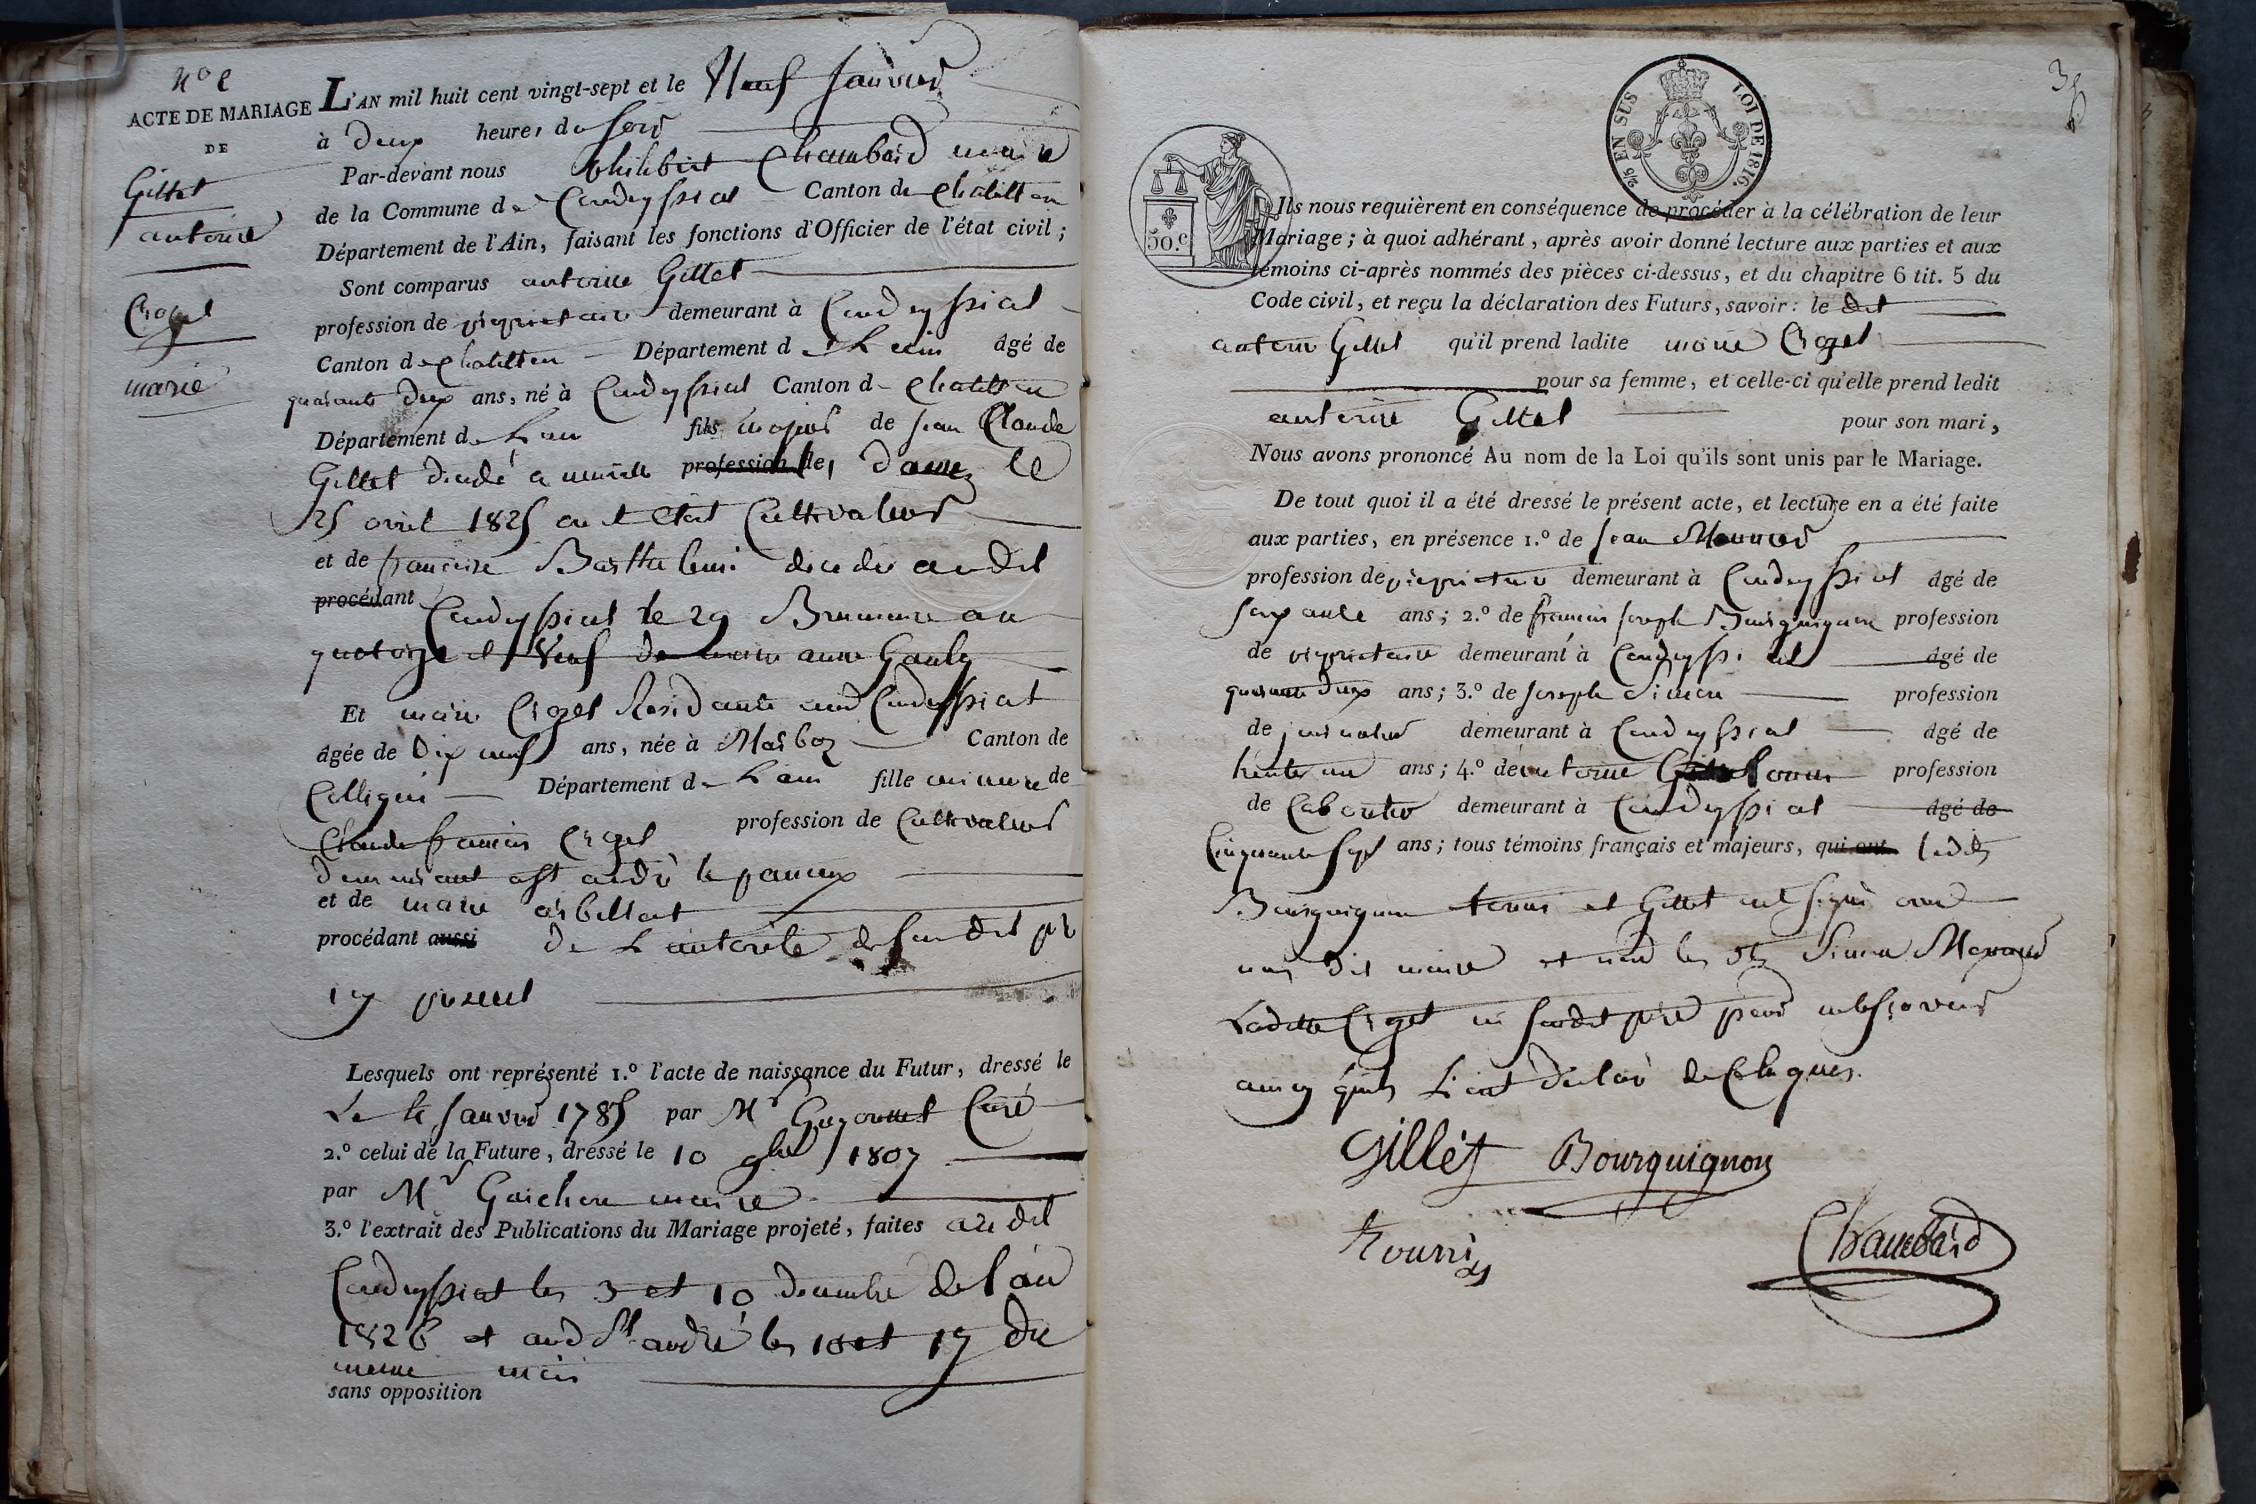 ACTE DE MARIAGE
DE
Gillet
antoine
Croget
marie
L'AN mil huit cent vingt-sept et le Neuf Janvier
à Deux heures du soir
Par-devant nous philibert Chambard maire
de la Commune de Condeyssiat Canton de Chatillon
Département de l'Ain, faisant les fonctions d'Officier de l'état civil;
Sont comparus antoine Gillet
profession de propriétaire demeurant à Condeyssiat
Canton de Chatillon Département de L'ain âgé de
quarante deux ans, né à Condeyssiat Canton de Chatillon
Département de L'ain fils majeur de Jean Claude
Gillet décédé à profession de, le
25 avril 1825 Cultivateur
et de françoise Barthelemi décédée audit
procédant
Condeyssiat le 29 Brumaire an
quatorze et Veuf de marie anne
Et marie Croget Résidante aud Condeyssiat
âgée de Dix neuf ans, née à Marboz Canton de
Colligni Département de L'ain fille mineure de
Claude françois Croget profession de Cultivateur
demeurant a St andré le panoux
et de marie
procédant aussi de L'autorité de sondit père
ici présent
Lesquels ont représenté 1.º l'acte de naissance du Futur, dressé le
Le Janvier 1785 par Mr Guyonnet Curé
2.º celui de la Future, dressé le 10 9bre 1807
par Mr maire
3.º l'extrait des Publications du Mariage projeté, faites audit
Condeyssiat les 3 et 10 décembre de l'an
1826 et aud St andré les 10 et 17 du
meme mois
sans opposition
50.c
2/5 EN SUS LOI DE 1816.
Ils nous requièrent en conséquence de procéder à la célébration de leur
Mariage; à quoi adhérant, après avoir donné lecture aux parties et aux
témoins ci-après nommés des pièces ci-dessus, et du chapitre 6 tit. 5 du
Code civil, et reçu la déclaration des Futurs, savoir: le dit
antoine Gillet qu'il prend ladite marie Croget
pour sa femme, et celle-ci qu'elle prend ledit
antoine Gillet pour son mari,
Nous avons prononcé Au nom de la Loi qu'ils sont unis par le Mariage.
De tout quoi il a été dressé le présent acte, et lecture en a été faite
aux parties, en présence 1.º de Jean
profession de propriétaire demeurant à Condeyssiat âgé de
soixante ans; 2.º de françois Joseph Bourguignon profession
de propriétaire demeurant à Condeyssiat âgé de
quarante deux ans; 3.º de Joseph Simon profession
de journalier demeurant à Condeyssiat âgé de
trente un ans; 4.º de antoine profession
de Sabotier demeurant à Condeyssiat âgé de
Cinquante Sept ans; tous témoins français et majeurs, qui ont lesdits
Bourguignon et Gillet ont signé avec
nous dit maire et non les dts Simon
Ladite Croget ni sondit père pour ne le sçavoir
ainsi qu'ils L'ont déclaré de Ce Enquis.
Gillet Bourquignon
Chambard